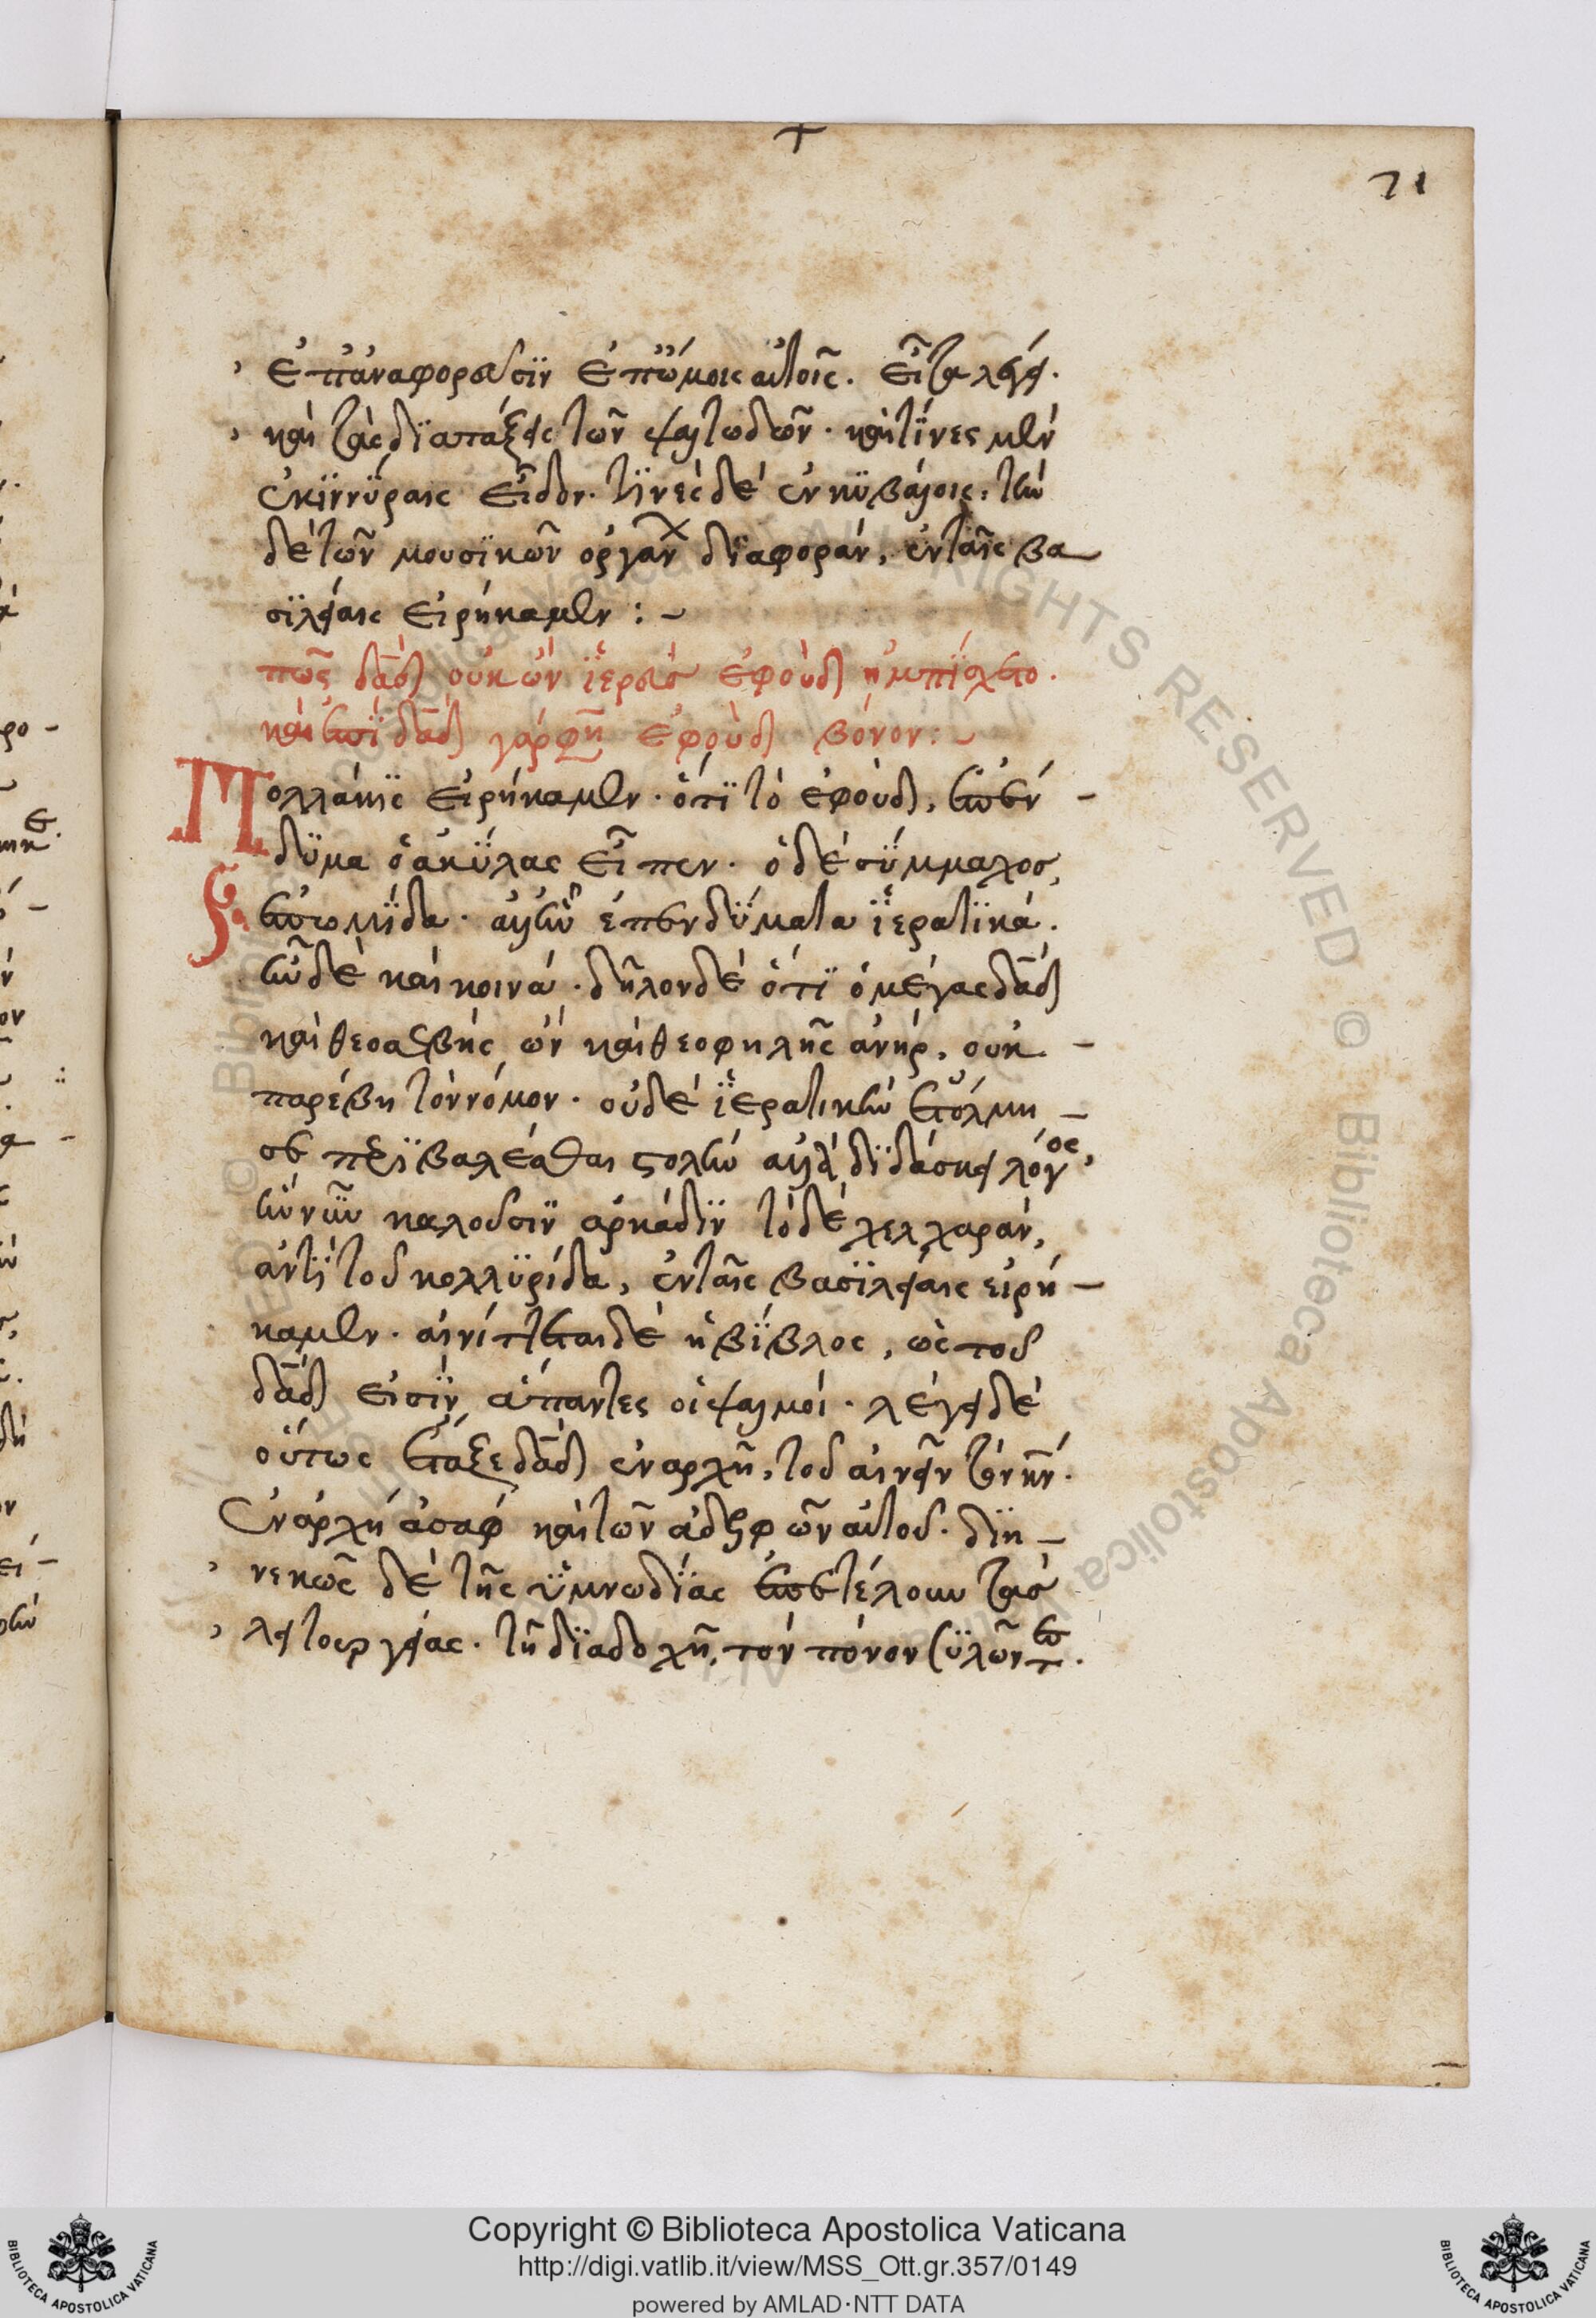 71
ἐπαναφορεῦσιν ἐπώμοις αὐτοῖς. εἶτα λέγει
καὶ τὰς διατάξεις τῶν ψαλτωδῶν. καὶ τίνες μὲν
ἐν κιννύραις εἶδον. τίνες δὲ ἐν κυβάλοις, τὴν
δὲ τῶν μουσϊκῶν ὀργάνων δϊαφοράν, ἐν ταῖς βα
σϊλείαις εἰρήκαμεν :-
πῶς δαδ οὐκ ὢν ἱερεὺς ἐφοὺδ ἠμπίσχετο.
καὶ ἐπὶ δαδ γάρ φη ἐφοὺδ βόνον :-
Πολλάκϊς εἰρήκαμεν. ὅτϊ τὸ ἐφοὺδ, ἐπεν-
δϋμα ὁ ἀκύλας εἶπεν. ὁ δὲ σύμμαχος,
ἐπωμίδα. ἐπενδύματα ἱερατϊκά.
ἦν δὲ καὶ κοινά. δῆλον δὲ ὅτϊ ὁ μέγας δαδ
καὶ θεοσεβὴς ὢν καὶ θεοφιλῆς ἀνὴρ, οὐκ-
παρέβη τὸν νόμον. οὐδὲ ἱερατικὴν ἐτόλμη-
σε περιβαλέσθαι στολὴν διδάσκει λόγος,
ἣν νῦν καλοῦσιν ἀρκάδϊν τὸ δὲ χελχαράν,
ἀντὶ τοῦ κολλϋρίδα, ἐν ταῖς βασϊλείαις εἰρή-
καμεν. αἰνίττεται δὲ ἡ βίβλος, ὡς τοῦ
δαδ εἰσὶν ἅπαντες οἱ ψαλμοί. λέγει δὲ
οὕτως ἔταξε δαδ ἐν ἀρχῆ, τοῦ αἰνεῖν τὸν κν.
Ἐν ἀρχῇ ἀσαφ καὶ τῶν ἀδελφῶν αὐτοῦ. δϊη-
νεκῶς δὲ τῆς ὑμνωδίας ἐπετέλουν τὰς
λειτουργείας. τῆ δϊαδοχῆ, τὸν πόνον
Copyright © Biblioteca Apostolica Vaticana
http://digi.vatlib.it/view/MSS_Ott.gr.357/0149
powered by AMLAD·NTT DATA
BIBLIOTECA APOSTOLICA VATICANA
BIBLIOTECA APOSTOLICA VATICANA